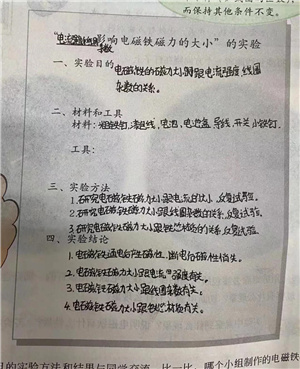 而保持其他条件不变。
影响电磁铁磁力的大小”的实验
一、实验目的
电磁铁的磁力大小跟电流强度,线圈
匝数的关系。
二、材料和工具
材料:粗铁钉,漆包线,电池,电池盒,导线,开关,小铁钉.
工具:
三、实验方法
1.研究电磁铁磁力大小跟电流的大小,反复试验。
2.研究电磁铁磁力大小跟线圈的关系,反复试验。
3.研究电磁铁磁力大小的关系,反复试验。
四、实验结论
1.电磁铁通电产生磁性,断电磁性消失。
2.电磁铁磁力大小跟电流强度有关。
3.电磁铁磁力大小跟线圈有关;
4.电磁铁磁力大小跟有关。
的实验方法和结果与同学交流,比一比,哪个小组制作的电磁铁